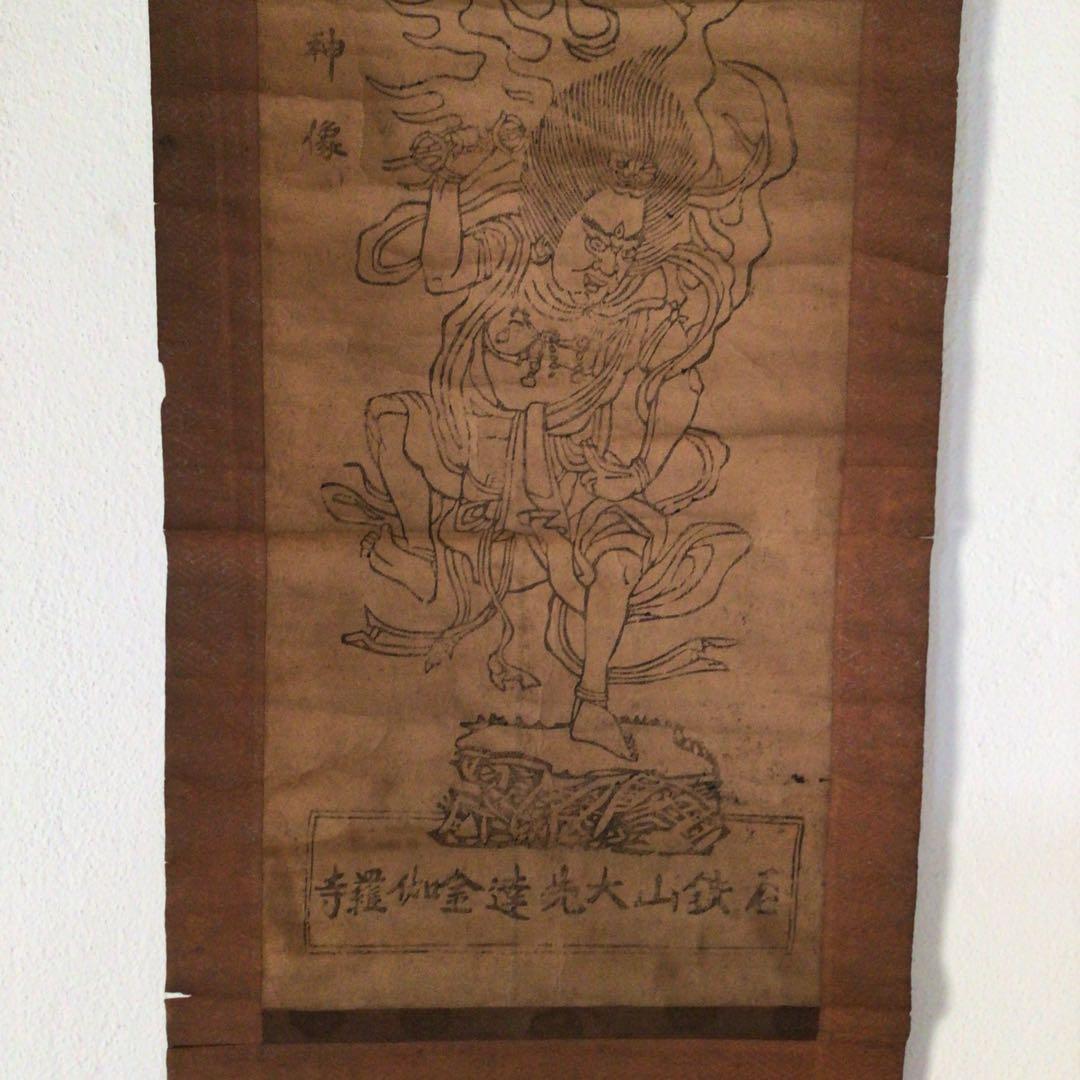 神像
石鉄山大先達金伽羅寺